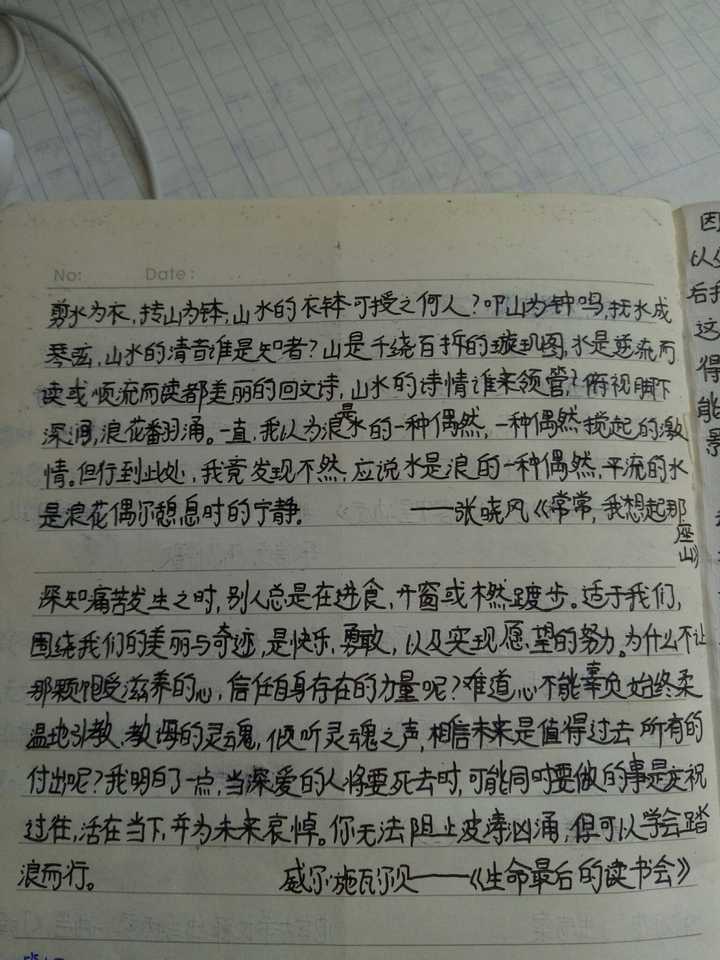 No:   Date:
剪水为衣，抟山为钵，山水的衣钵可授之何人？叩山为钟鸣，抚水成
琴弦，山水的清音谁是知者？山是千绕百折的璇玑图，水是逆流而
读或顺流而读都美丽的回文诗，山水的诗情谁来领管？俯视脚下
深涧，浪花翻涌。一直，我以为浪是水的一种偶然，一种偶然搅起的激
情。但行到此处，我竟发现不然，应说水是浪的一种偶然，平流的水
是浪花偶尔憩息时的宁静。 ——张晓风《常常，我想起那
座
山》
深知痛苦发生之时，别人总是在进食、开窗或木然踱步。适于我们，
围绕我们的美丽与奇迹，是快乐、勇敢，以及实现愿望的努力。为什么不让
那颗饱受滋养的心，信任自身存在的力量呢？难道心不能辜负始终柔
温地引教、教诲的灵魂，倾听灵魂之声，相信未来是值得过去所有的
付出呢？我明白了一点，当深爱的人将要死去时，可能同时要做的事是庆祝
过往，活在当下，并为未来哀悼。你无法阻止波涛汹涌，但可以学会踏
浪而行。 威尔·施瓦尔贝——《生命最后的读书会》
因
以
后我
这
得
能
景